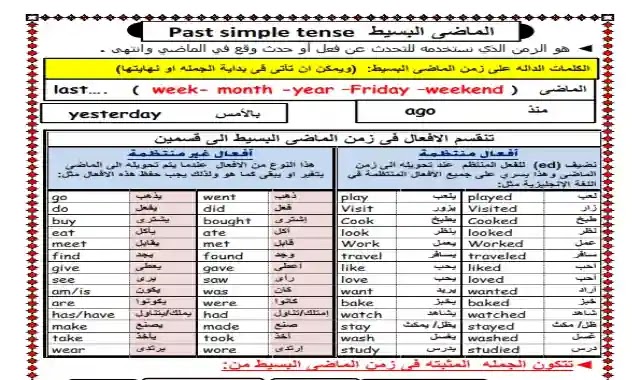 Past simple tense الماضى البسيط
هو الزمن الذي نستخدمه للتحدث عن فعل أو حدث وقع في الماضي وانتهى .
الكلمات الداله على زمن الماضى البسيط: (ويمكن ان تأتى فى بداية الجمله او نهايتها)
last.... ( week- month -year -Friday -weekend ) الماضى
yesterday بالأمس ago منذ
تنقسم الافعال فى زمن الماضى البسيط الى قسمين
أفعال غير منتظمة
هذا النوع من الافعال عندما يتم تحويله الى الماضى
يتغير او يبقى كما هو ولذلك يجب حفظ هذه الافعال مثل:
أفعال منتظمة
نضيف (ed) للفعل المنتظم عند تحويله الى زمن
الماضى وهذا يسرى على جميع الافعال المنتظمة فى
اللغة الإنجليزية مثل:
go يذهب went ذهب play يلعب played لعب
do يفعل did فعل Visit يزور Visited زار
buy يشترى bought إشترى Cook يطبخ Cooked طبخ
eat يأكل ate أكل look ينظر looked نظر
meet يقابل met قابل Work يعمل Worked عمل
find يجد found وجد travel يسافر traveled سافر
give يعطى gave أعطى like يحب liked أحب
see يرى saw رأى love يحب loved أحب
am/is يكون was كان want يريد wanted أراد
are يكونوا were كانوا bake يخبز baked خبز
has/have يملك/يتناول had إمتلك/تناول watch يشاهد watched شاهد
make يصنع made صنع stay يظل/ يمكث stayed ظل/ مكث
take يأخذ took أخذ wash يغسل washed غسل
wear يرتدى wore إرتدى study يدرس studied درس
تتكون الجمله المثبته فى زمن الماضى البسيط من: